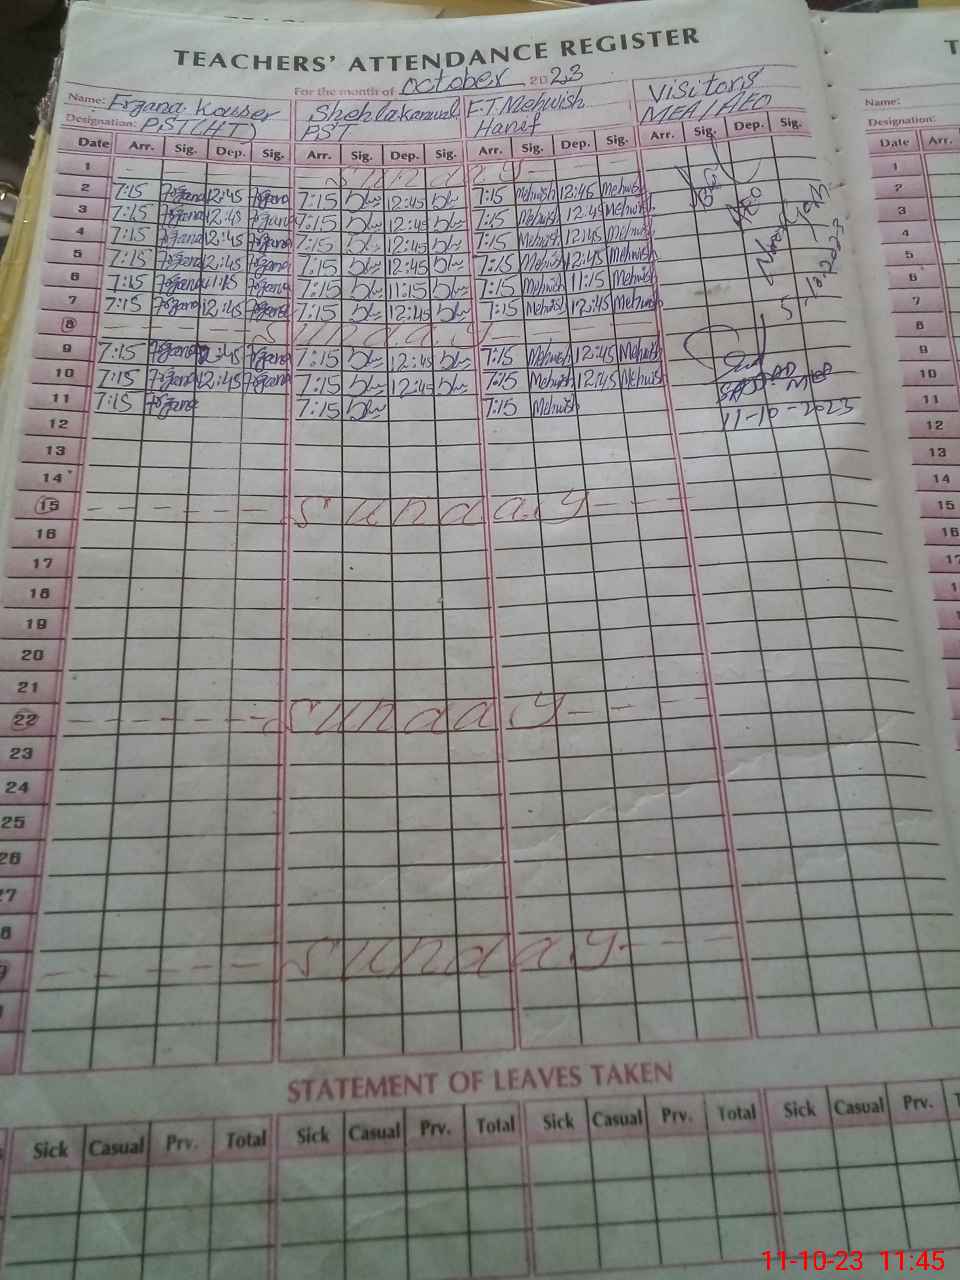 TEACHERS' ATTENDANCE REGISTER
For the month of October 2023
Name: Kousser Shehlakanwal F.T. Mehwish Visitors
Designation: PST(HT) PST Hanif MEA/AEO
Date Arr. Sig. Dep. Sig. Arr. Sig. Dep. Sig. Arr. Sig. Dep. Sig. Arr. Sig. Dep. Sig.
1 Sunday
2 7:15 12:45 7:15 12:45 7:15 Mehwish 12:45 Mehwish
3 7:15 12:45 7:15 12:45 7:15 Mehwish 12:45 Mehwish
4 7:15 12:45 7:15 12:45 7:15 Mehwish 12:45 Mehwish
5 7:15 12:45 7:15 12:45 7:15 Mehwish 12:45 Mehwish
6 7:15 11:15 7:15 11:15 7:15 Mehwish 11:15 Mehwish
7 7:15 12:45 7:15 12:45 7:15 Mehwish 12:45 Mehwish
AEO
5-10-2023
8 Sunday
9 7:15 12:45 7:15 12:45 7:15 Mehwish 12:45 Mehwish
10 7:15 12:45 7:15 12:45 7:15 Mehwish 12:45 Mehwish
11 7:15 7:15 7:15 Mehwish
11-10-2023
12
13
14
15 Sunday
16
17
18
19
20
21
22 Sunday
23
24
25
26
27
8
9 Sunday
STATEMENT OF LEAVES TAKEN
Sick Casual Prv. Total Sick Casual Prv. Total Sick Casual Prv. Total Sick Casual Prv. T
T
Name:
Designation:
Date Arr.
1
2
3
4
5
6
7
8
9
10
11
12
13
14
15
16
17
1
1
11-10-23 11:45